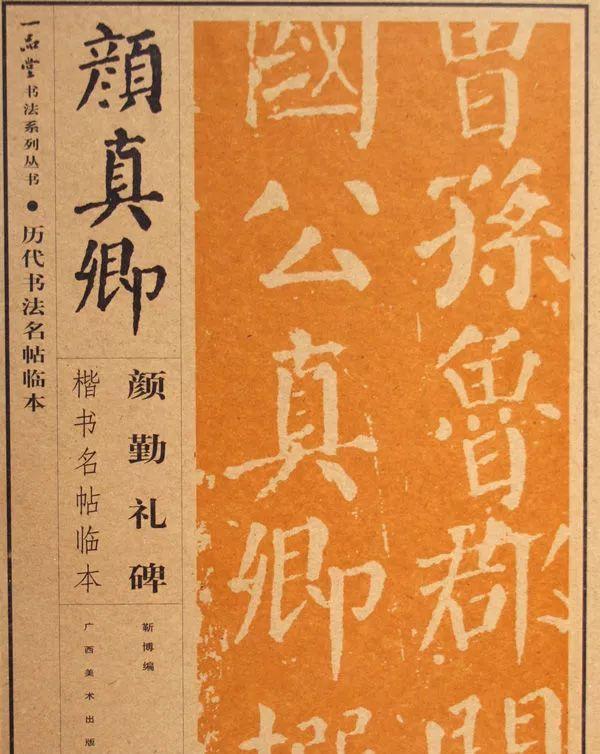 曾孫魯郡開
國公真卿撰
顔真卿
颜勤礼碑
楷书名帖临本
靳博编
广西美术出版
一品堂书法系列丛书●历代书法名帖临本